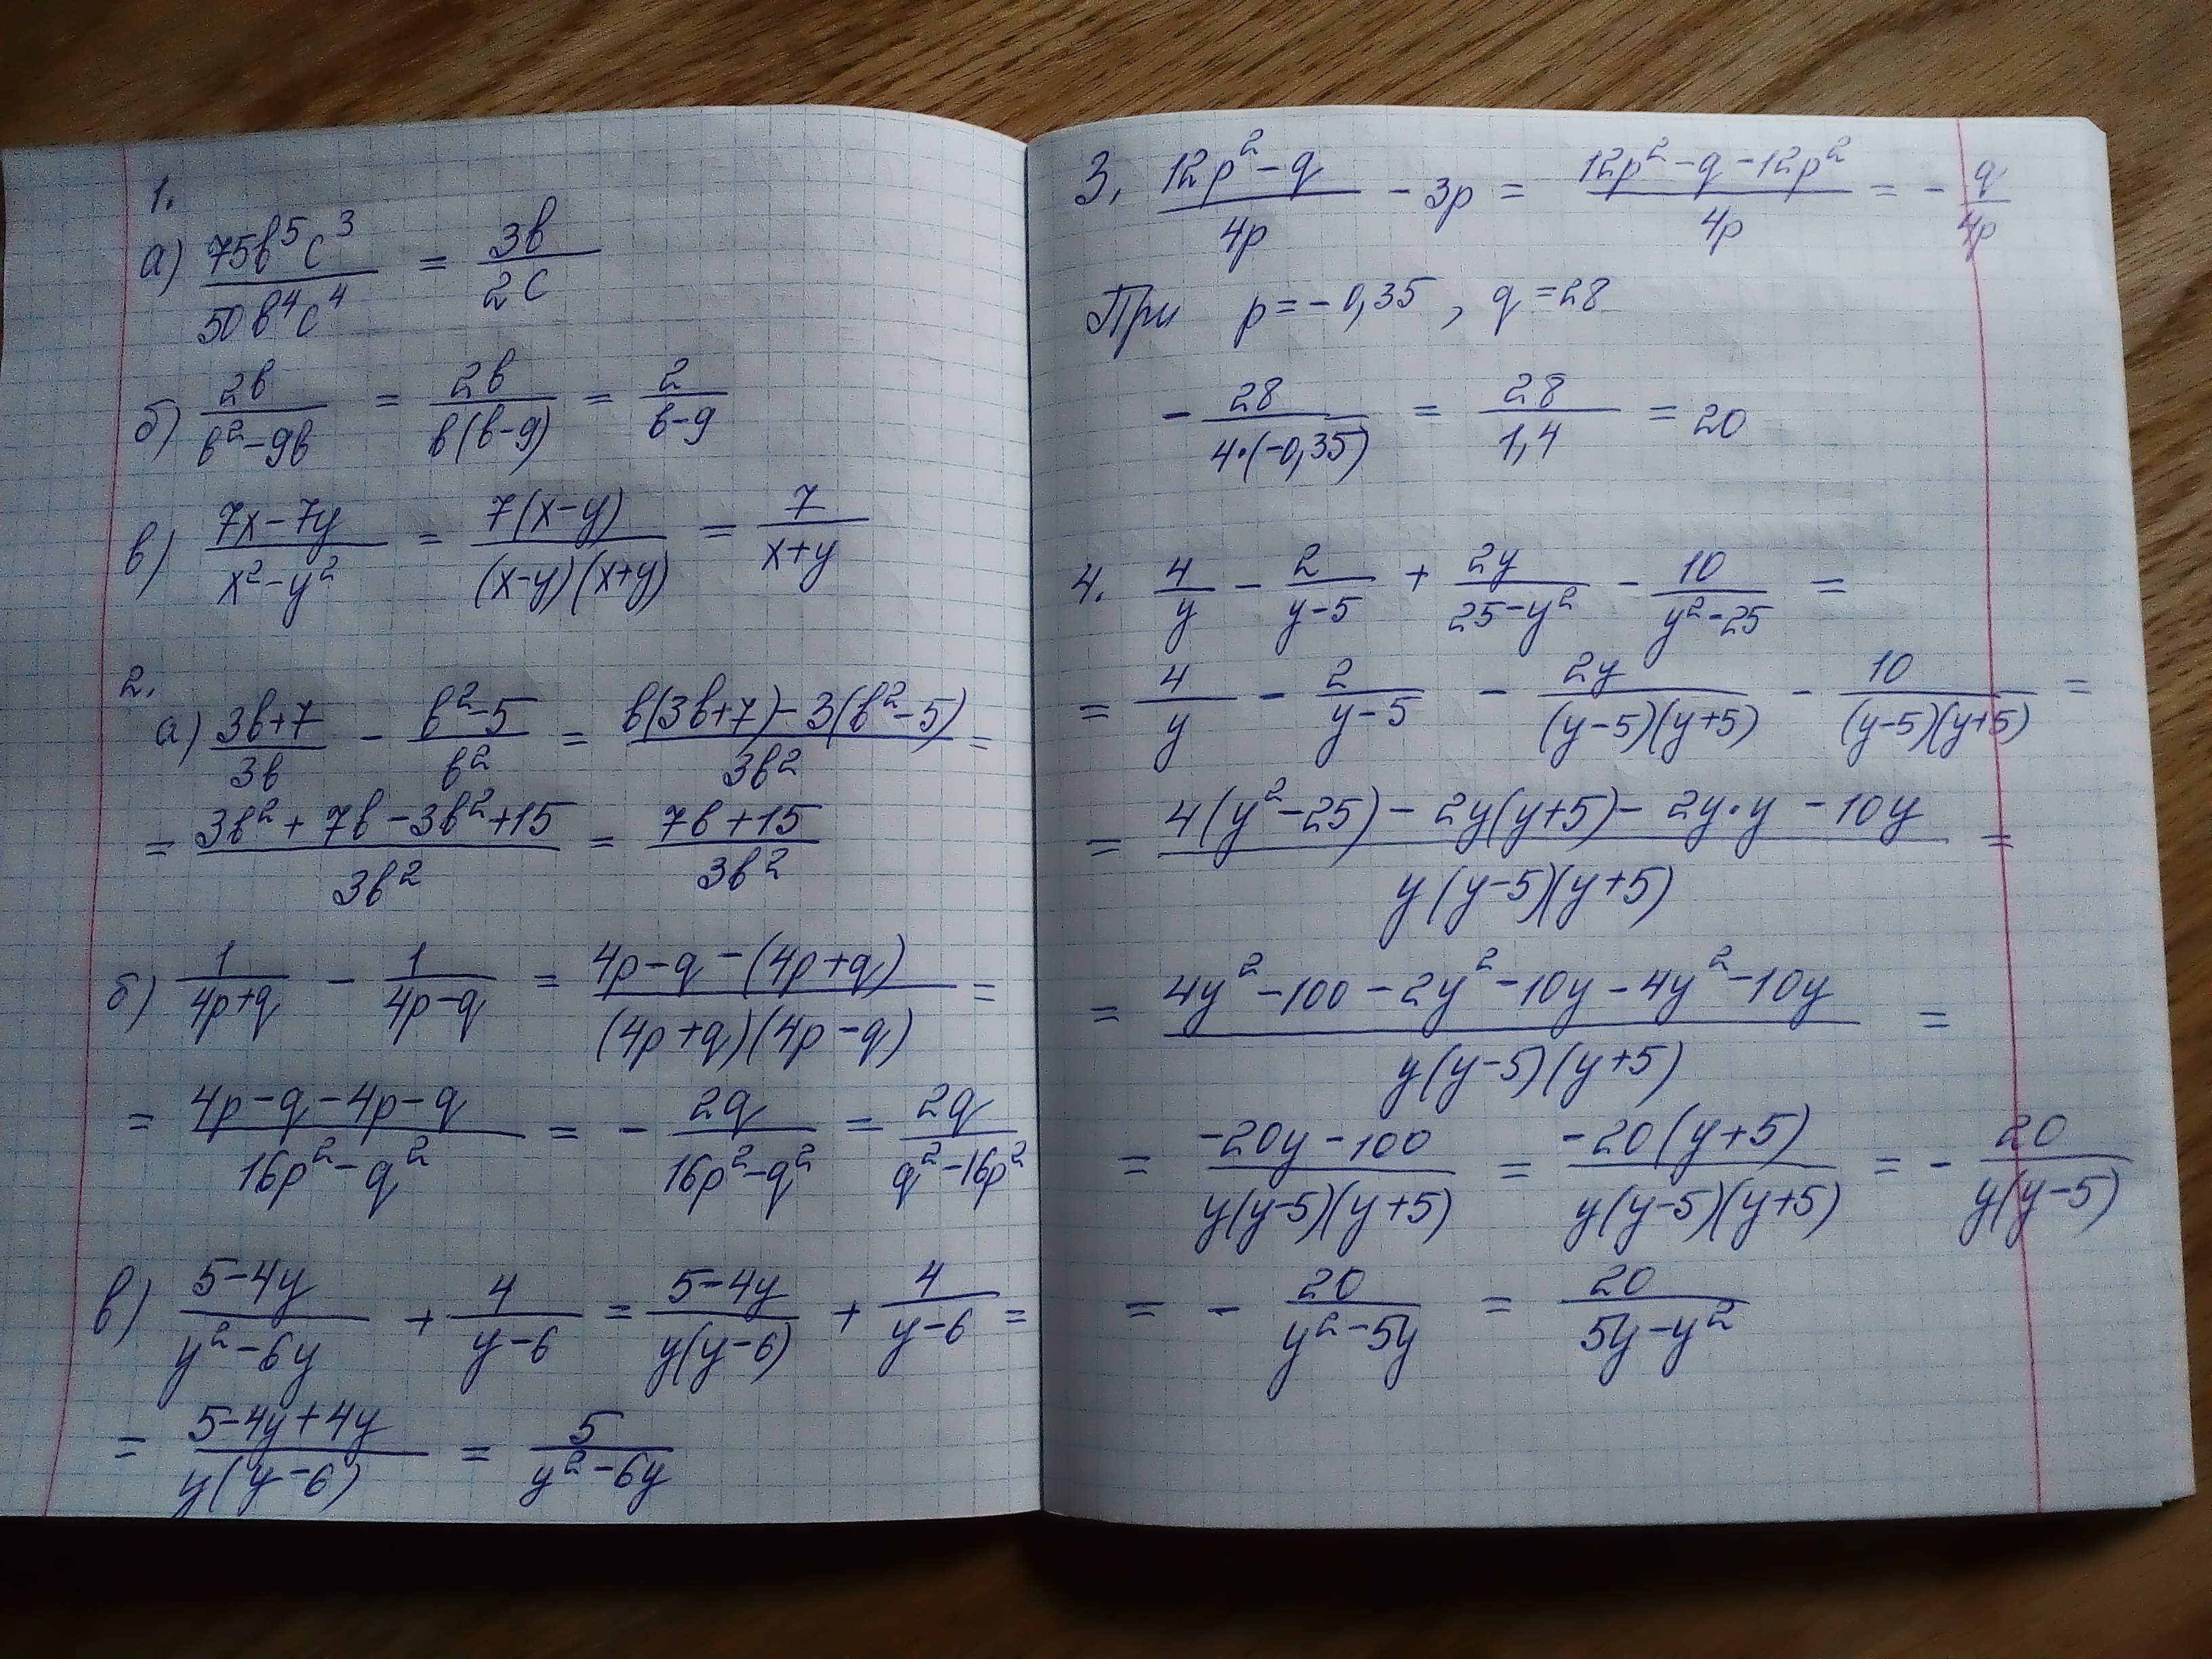 1.
а) 75в⁵с³/50в⁴с⁴ = 3в/2с
б) 2в/(в²-9в) = 2в/(в(в-9)) = 2/(в-9)
в) (7x-7y)/(x²-y²) = 7(x-y)/((x-y)(x+y)) = 7/(x+y)
2.
а) (3в+7)/3в - (в²-5)/в² = (в(3в+7)-3(в²-5))/3в² =
= (3в²+7в-3в²+15)/3в² = (7в+15)/3в²
б) 1/(4p+q) - 1/(4p-q) = (4p-q-(4p+q))/((4p+q)(4p-q)) =
= (4p-q-4p-q)/(16p²-q²) = - 2q/(16p²-q²) = 2q/(q²-16p²)
в) (5-4y)/(y²-6y) + 4/(y-6) = (5-4y)/(y(y-6)) + 4/(y-6) =
= (5-4y+4y)/(y(y-6)) = 5/(y²-6y)
3. (12p²-q)/4p - 3p = (12p²-q-12p²)/4p = - q/4p
При p=-0,35, q=28
- 28/(4·(-0,35)) = 28/1,4 = 20
4. 4/y - 2/(y-5) + 2y/(25-y²) - 10/(y²-25) =
= 4/y - 2/(y-5) - 2y/((y-5)(y+5)) - 10/((y-5)(y+5)) =
= (4(y²-25)-2y(y+5)-2y·y-10y)/(y(y-5)(y+5)) =
= (4y²-100-2y²-10y-4y²-10y)/(y(y-5)(y+5)) =
= (-20y-100)/(y(y-5)(y+5)) = -20(y+5)/(y(y-5)(y+5)) = - 20/(y(y-5))
= - 20/(y²-5y) = 20/(5y-y²)